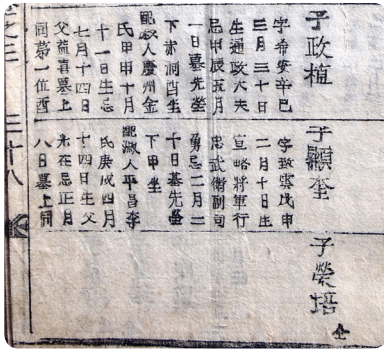 子政植
字希安辛巳
三月三十日
生通政大夫
忌甲辰五月
一日墓先塋
下赤洞酉坐
配淑人慶州金
氏甲申十月
十一日生忌
七月十四日
父益喜墓上
同第一位酉
子顯奎
字致雲戊申
二月十日生
宣略將軍行
忠武衛副司
勇忌二月二
十日墓先塋
下甲坐
配淑人平昌李
氏庚戌四月
十四日生父
光在忌正月
八日墓上同
子榮培
仝
三十八